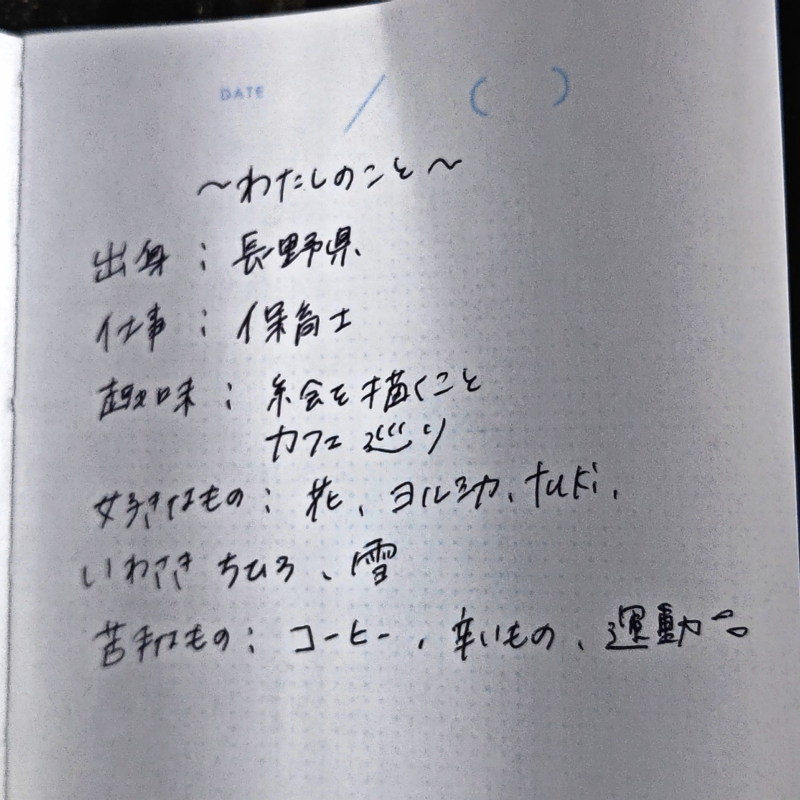 DATE / ( )
～わたしのこと～
出身：長野県
仕事：保育士
趣味：絵を描くこと
カフェ巡り
好きなもの：花、ヨルシカ、tuki.、
いわさきちひろ、雪
苦手なもの：コーヒー、辛いもの、運動